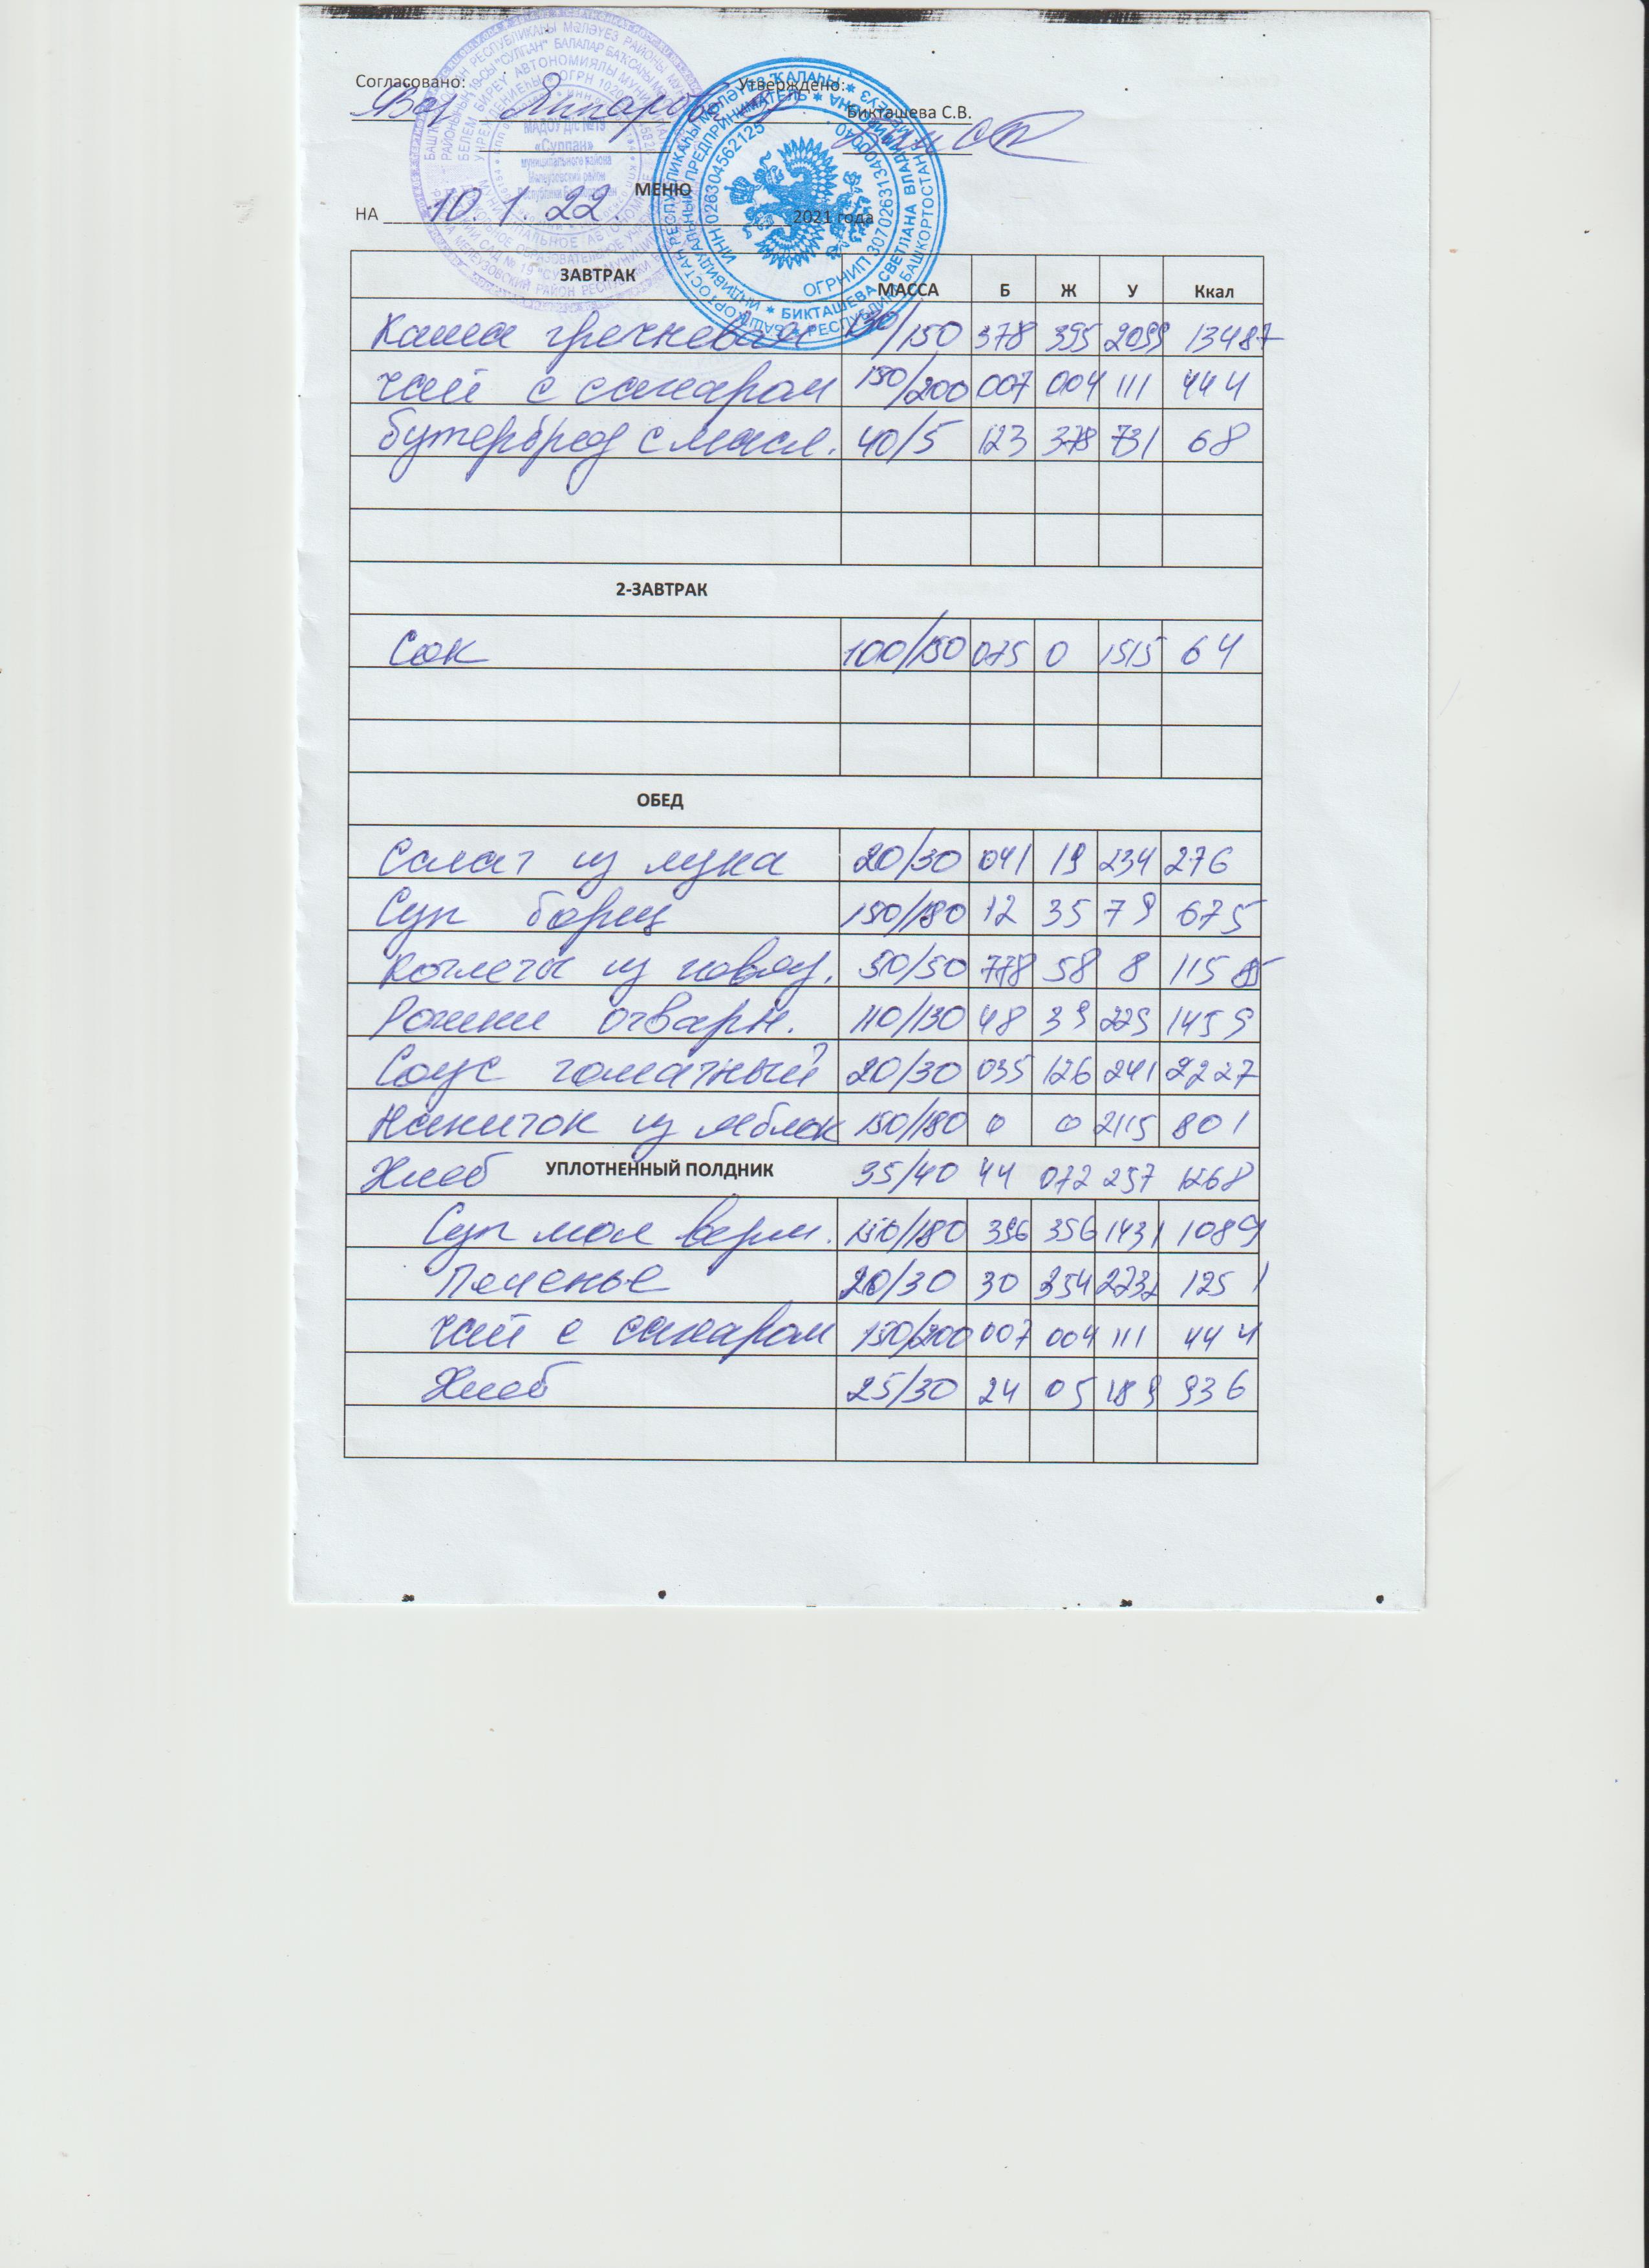 Согласовано:
Утверждено:
Бикташева С.В.
МАДОУ Д/с №19
«Сулпан»
муниципального района
Мелеузовский район
Республики Башкортостан
ИНН 026304562125
ОГРНИП 307026313400040
БИКТАШЕВА СВЕТЛАНА ВЛАДИМИРОВНА
ИНДИВИДУАЛЬНЫЙ ПРЕДПРИНИМАТЕЛЬ
МЕНЮ
НА 10. 1. 22. 2021 года
ЗАВТРАК МАССА Б Ж У Ккал
Каша гречневая 130/150 378 395 2099 13487
чай с сахаром 150/200 007 004 111 444
бутерброд с масл. 40/5 123 378 731 68
2-ЗАВТРАК
Сок 100/150 075 0 1515 64
ОБЕД
Салат из лука 20/30 041 19 234 276
Суп борщ 150/180 12 35 79 675
Котлеты из говяд. 50/50 778 58 8 115
Рожки отварн. 110/130 48 39 229 1459
Соус томатный 20/30 035 126 241 2227
Напиток из яблок 150/180 0 0 2115 801
Хлеб УПЛОТНЕННЫЙ ПОЛДНИК 35/40 44 072 257 1268
Суп мол верм. 150/180 396 356 1431 1089
Печенье 20/30 30 354 2232 125 1
чай с сахаром 150/200 007 004 111 444
Хлеб 25/30 24 05 189 936